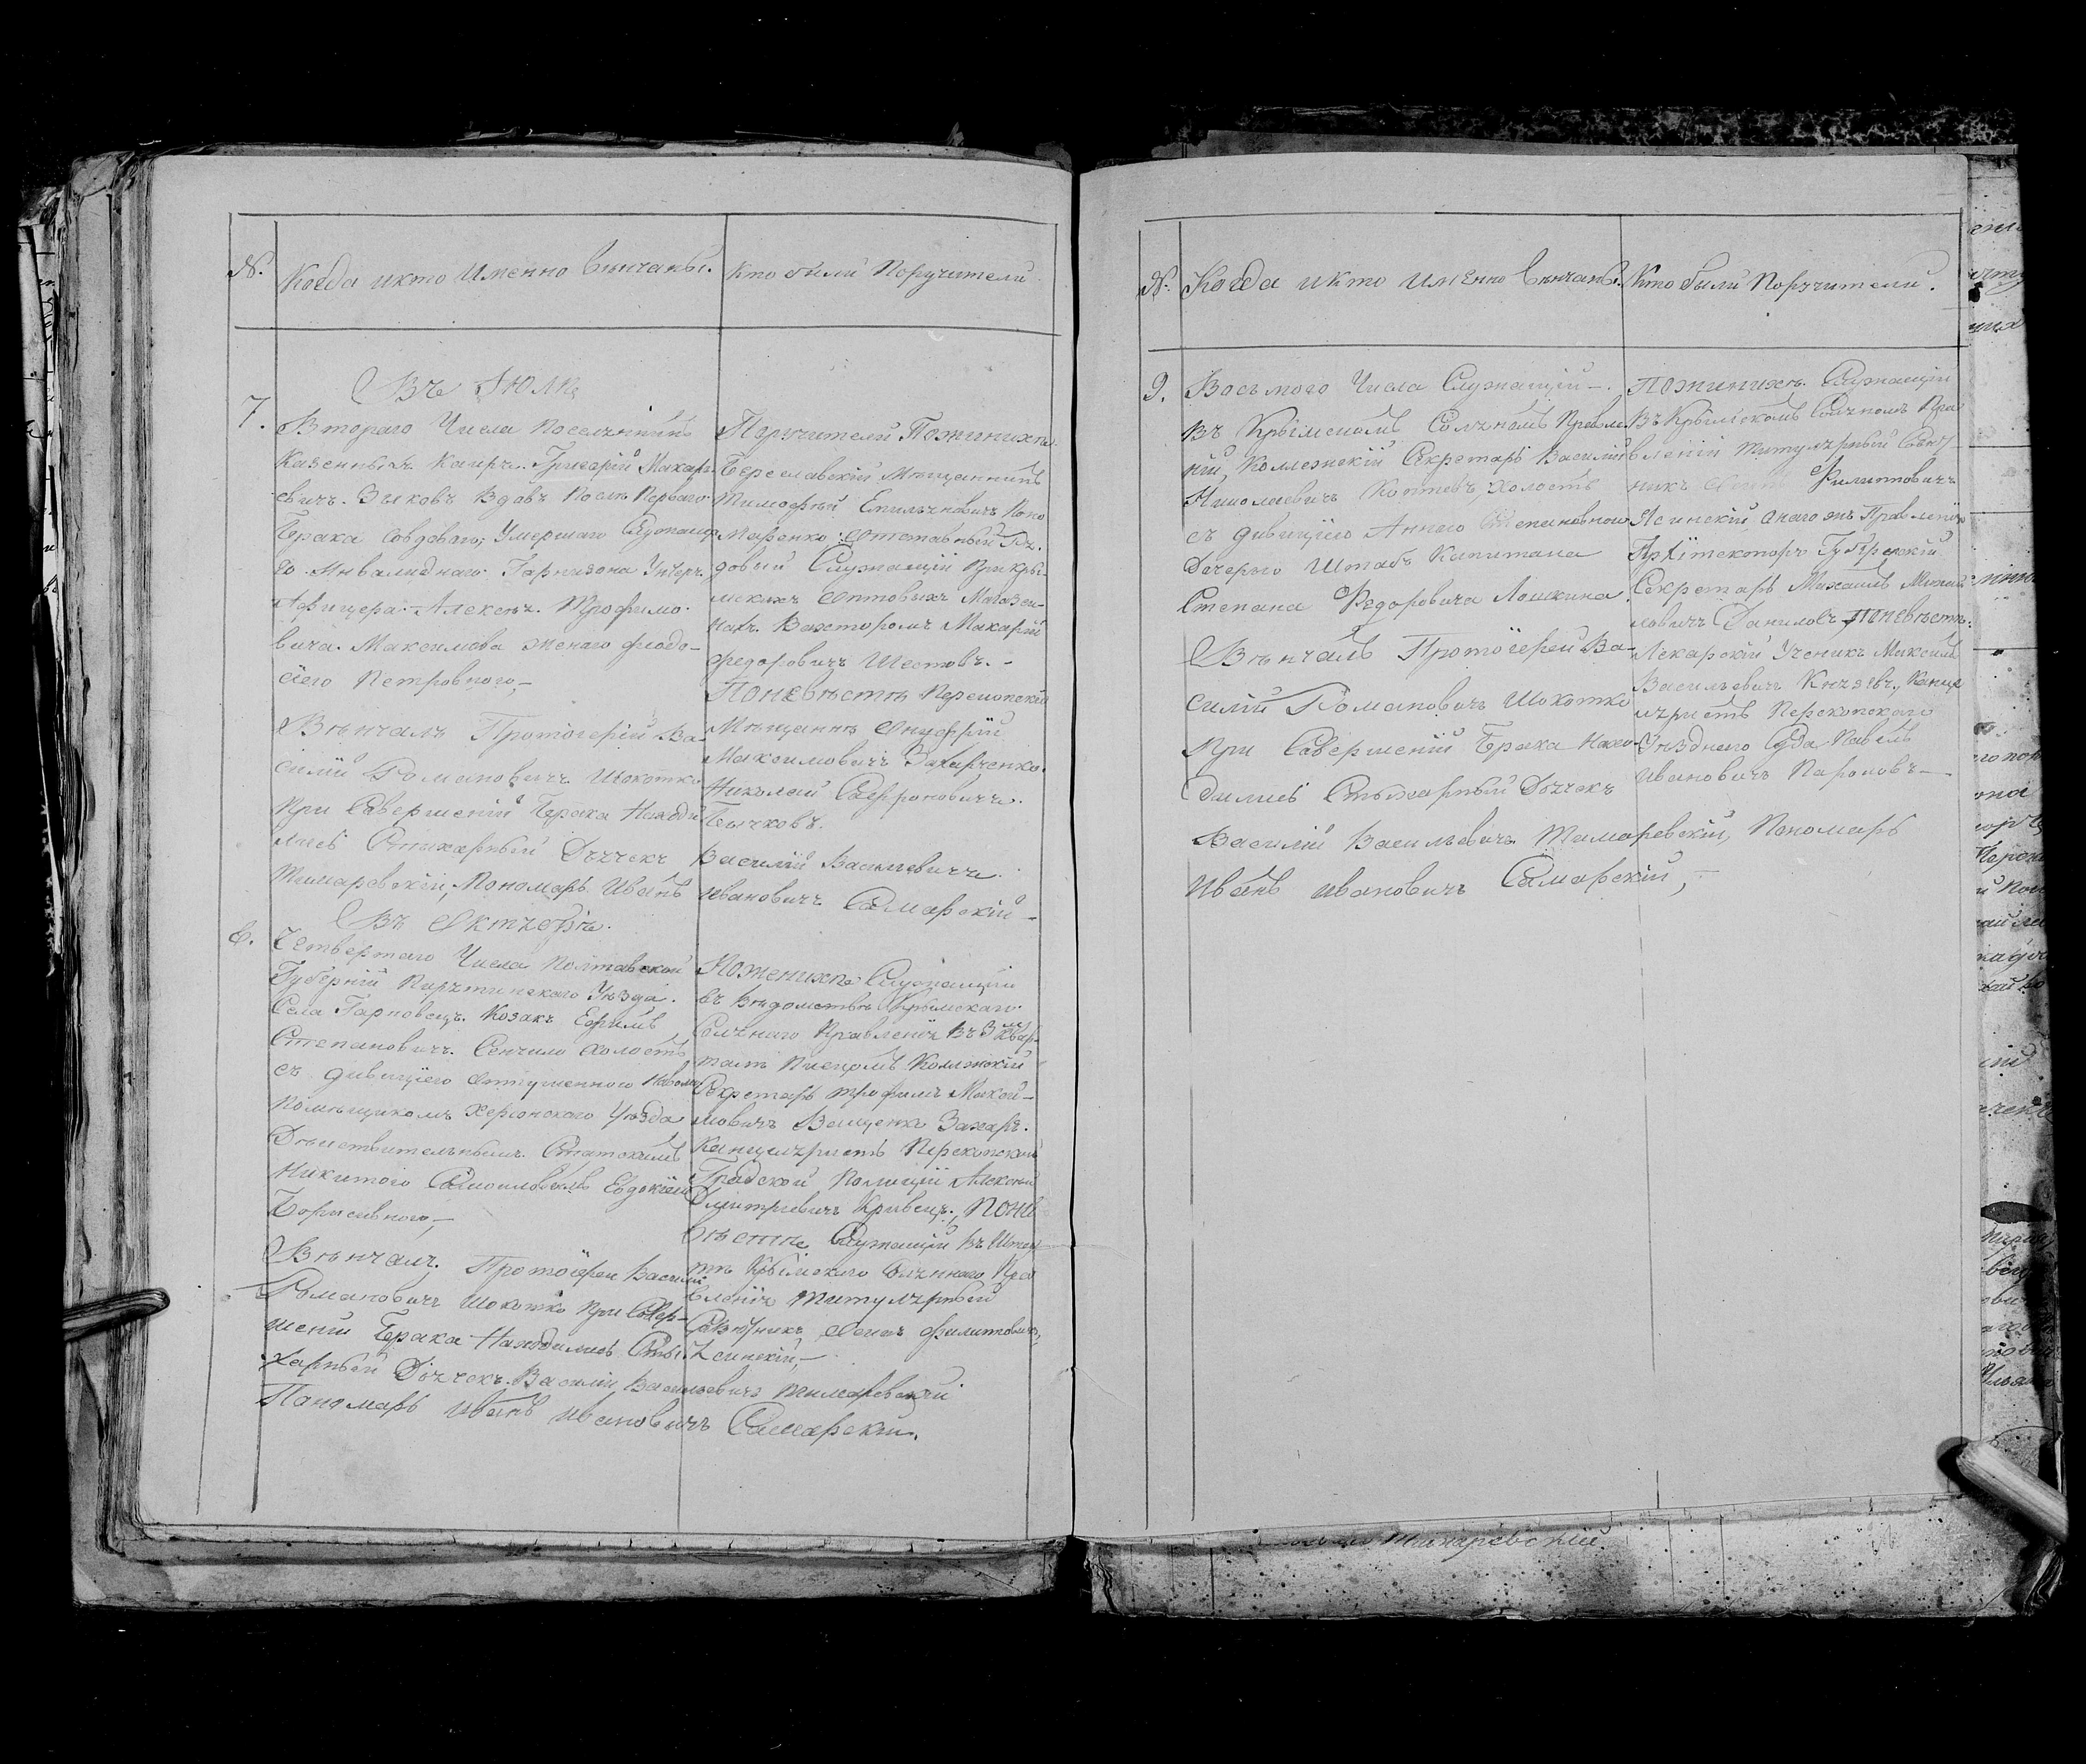 №.
Когда икто Именно Вѣнчаны.
Кто были Поручители
Въ Іюлѣ
7.
Втораго Числа Поселянинъ
Казенныхъ Каиръ. Григорій Макарь
евичъ. Зыковъ Вдовъ Послѣ Перваго
Брака Совдовою; Умершаго Служаща
го. Инвалиднаго. Гарнизона Унтеръ.
Афицера. Алексѣя. Трофимо.
вича. Максимова женаю феодо-
сіею Петровною,-
Вѣнчалъ Протоіерей Ва-
силій Романовичъ Шокотко
При Совершеніи Брака Находи
лись Стихарный Дьячекъ Василій Васильевичъ.
Тимаревскій, Пономарь Иванъ Ивановичъ Самарскій-
Поручители Поженихѣ.
Береславскій Мѣщанинъ
Тимофѣй Емильяновичъ Коно
маренко: Отставный Ря.
довый Служащій Прикры-
мскихъ Оптовыхъ Магазеи-
нахъ. Вахторомъ Макарій
Федоровичъ Шестовъ.-
Поневѣстѣ Перекопскій
Мѣщанинъ Онуфрій
Максимовичъ Захарченко.
Николай Сафроновичъ.
Бычковъ.
Въ Октябрѣ.
8.
Четвертаго Числа Полтавской
Губерніи Пирятинскаго Уѣзда.
Села Гарновецъ. Козакъ Ефимъ
Степановичъ. Сенчило Холостъ
съ дивицѣю Отпущенною Наволю
Помѣщикомъ Херсонскаго Уѣзда
Дѣйствительнымъ. Статскимъ
Никитою Самойловымъ Евдокіею
Борисивною,-
Вѣнчалъ. Протоіерей Василій
Романовичъ Шокотко При Совер-
шеніи Брака Находились Сти-
харный Дьячекъ. Василій Васильевичъ Тимаревскій
Паномарь Иванъ Ивановичъ Самарскій.
Поженихѣ Служащій
въ Вѣдомствѣ Крымскаго.
Солянаго Правленія Въ 3 мъ Квар-
талѣ Писцомъ Колежскій
Секретарь Трофимъ Макси-
мовичъ
Канцеляристъ Перекопской
Градской Полиціи Алексѣй
Дмитріевичъ Кривецъ., Поне
вѣстѣ Служащій Въ
Крымскаго Солянаго Прав
вленія Титулярный
Совѣтникъ, Осипъ Филиповичъ,
Ясинскій,-
№.
Когда икто Именно Вѣнчаны.
Кто были Поручители.
9.
Восьмого Числа Служащій-.
Въ Крымскомъ Соляномъ Правле
ніи, Коллежскій Секретарь Василій
Николаевичъ Коптевъ, Холостъ
съ дивицѣю Анною Степановною
Дочерью Штабъ Капитана
Степана Федоровича Лошкина.
Вѣнчалъ Протоіерей Ва-
силій Романовичъ Шокотко
При Совершеніи Брака Нахо-
дились Стихарный Дьячекъ
Василій Васильевичъ Тимаревскій, Пономарь
Иванъ Ивановичъ Самарскій,-
Поженихѣ. Служащій
Въ Крымскомъ Соляномъ Пра
вленіи Титулярный Совѣт
никъ Осипъ Филипповичъ
Ясинскій, Онаго жъ Правленія
Архітекторъ Губернскій
Секретарь Михаилъ Михай-
ловичъ Даниловъ Поневѣстѣ.
Лекарскій Ученикъ Максимъ
Васильевичъ Князевъ., Канце
ляристъ Перекопскаго
Уѣзднаго Суда Павелъ
Ивановичъ Паромовъ-
Тимаревскій.